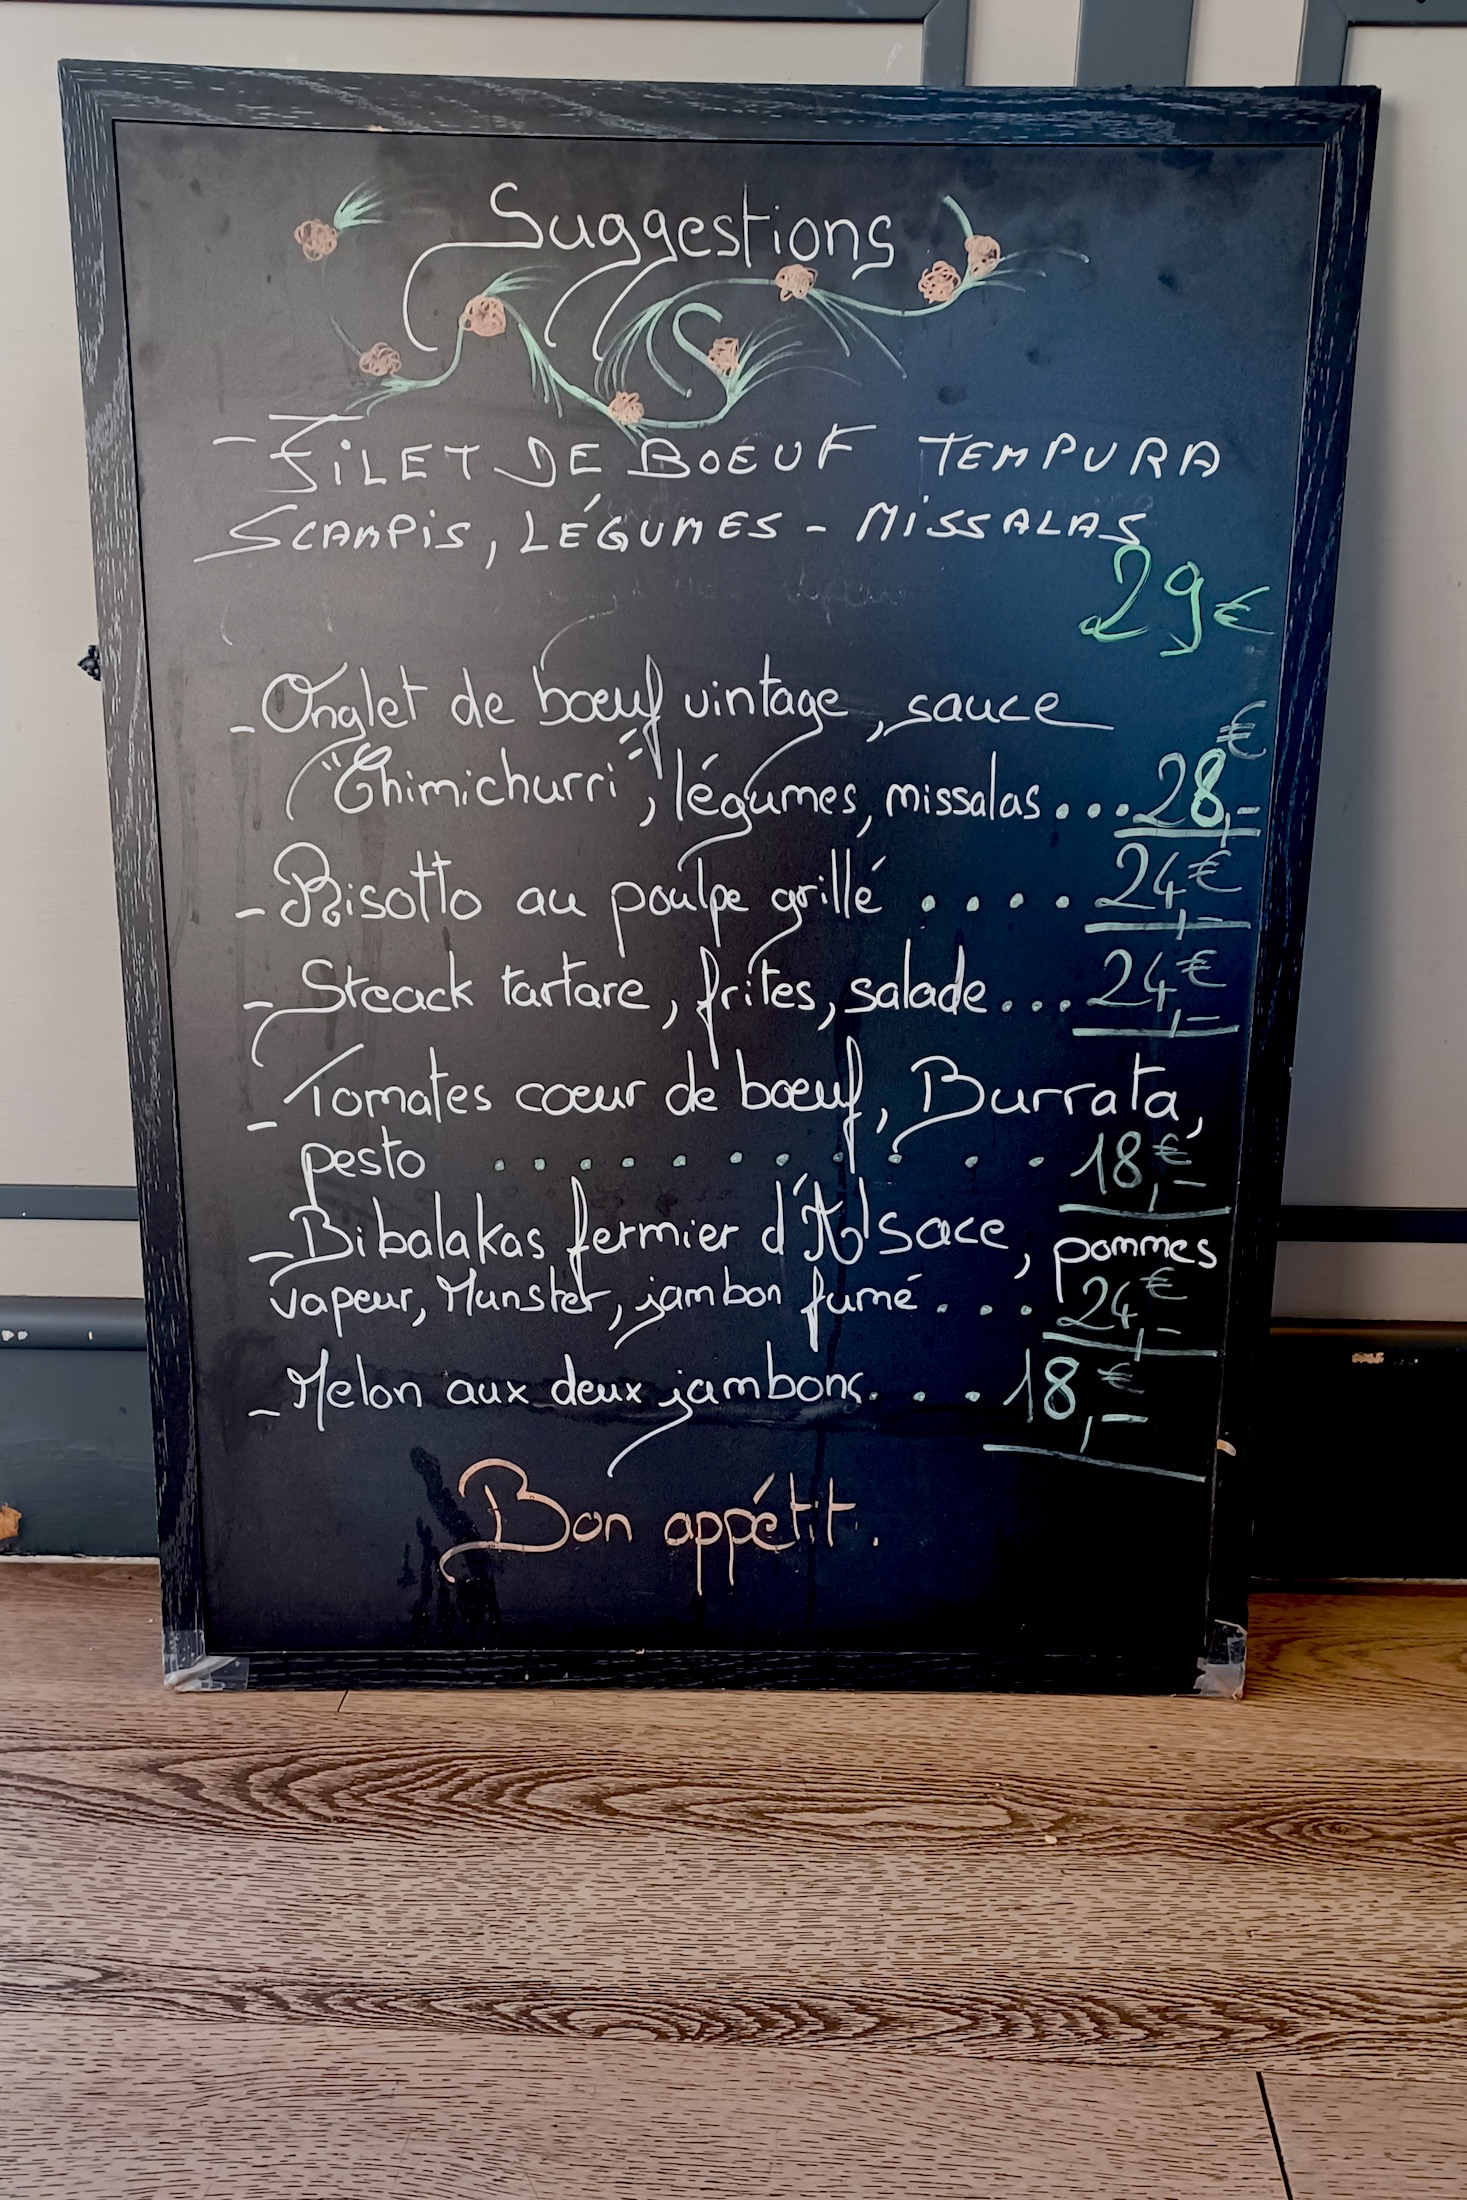 Suggestions
- FILET DE BOEUF TEMPURA
SCAMPIS, LÉGUMES - MISSALAS
29€
- Onglet de bœuf vintage, sauce
"Chimichurri", légumes, missalas...28,-€
- Risotto au poulpe grillé ....24,-€
- Steack tartare, frites, salade...24,-€
- Tomates cœur de bœuf, Burrata,
pesto ...........18,-€
- Bibalakas fermier d'Alsace, pommes
vapeur, Munster, jambon fumé...24,-€
- Melon aux deux jambons...18,-€
Bon appétit.